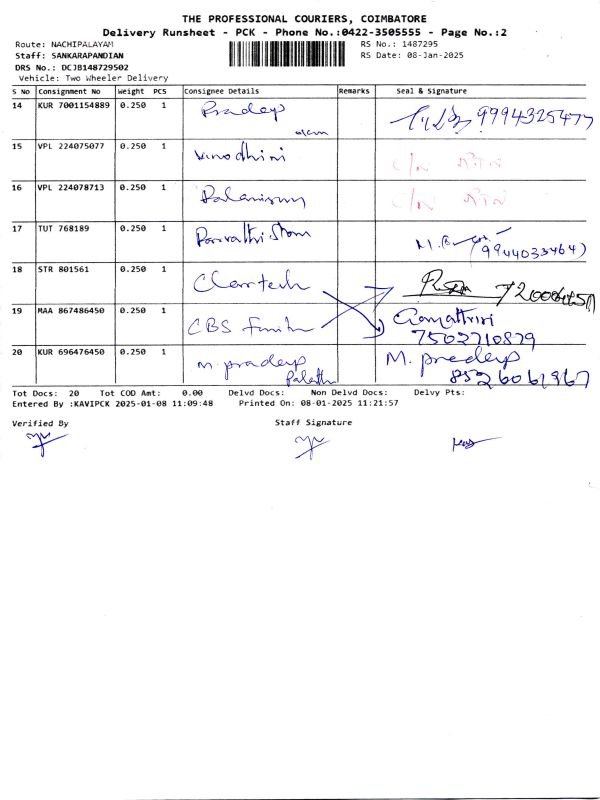 THE PROFESSIONAL COURIERS, COIMBATORE
Delivery Runsheet - PCK - Phone No.:0422-3505555 - Page No.:2
Route: NACHIPALAYAM
RS No.: 1487295
Staff: SANKARAPANDIAN
RS Date: 08-Jan-2025
DRS No.: DCJB148729502
Vehicle: Two Wheeler Delivery
S No Consignment No Weight PCS Consignee Details Remarks Seal & Signature
14 KUR 7001154889 0.250 1 Pradeep 9994325477
15 VPL 224075077 0.250 1 Vinodhini
16 VPL 224078713 0.250 1 Palanisamy
17 TUT 768189 0.250 1 (9944033464)
18 STR 801561 0.250 1
19 MAA 867486450 0.250 1 CBS Gomathini
7502710879
20 KUR 696476450 0.250 1 M. pradeep M. pradeep
8526061967
Tot Docs: 20 Tot COD Amt: 0.00 Delvd Docs: Non Delvd Docs: Delvy Pts:
Entered By :KAVIPCK 2025-01-08 11:09:48 Printed On: 08-01-2025 11:21:57
Verified By Staff Signature